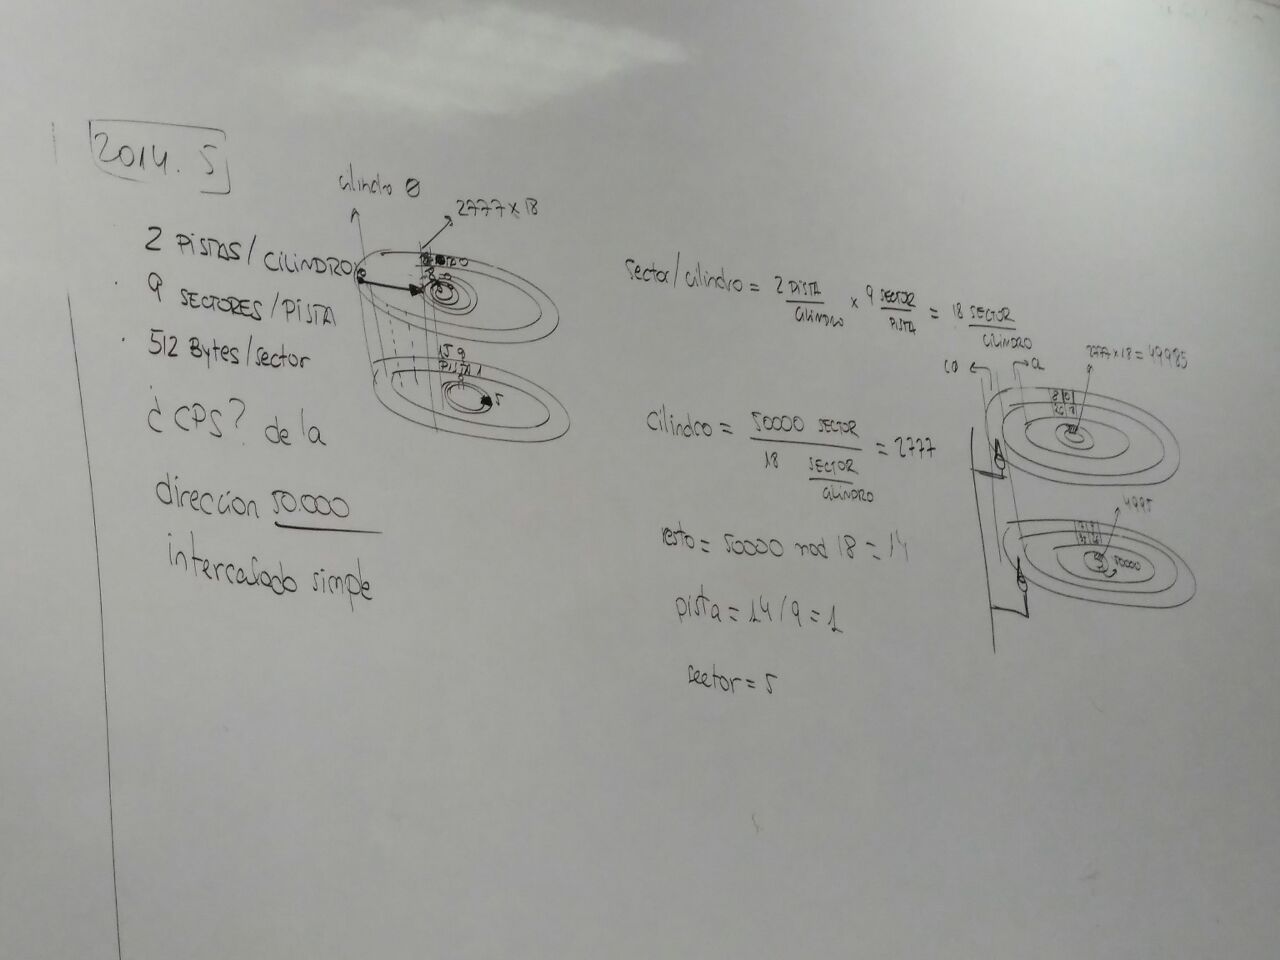 2014. 5
cilindro 0
2777 x 18
2 PISTAS/CILINDRO
9 SECTORES/PISTA
512 Bytes/sector
¿CPS? de la
dirección 50.000
intercalado simple
PISTA 1
5
sector/cilindro = 2 PISTA/CILINDRO x 9 SECTOR/PISTA = 18 SECTOR/CILINDRO
Cilindro = 50000 SECTOR / 18 SECTOR/CILINDRO = 2777
resto = 50000 mod 18 = 14
pista = 14/9 = 1
sector = 5
2777 x 18 = 49985
50000